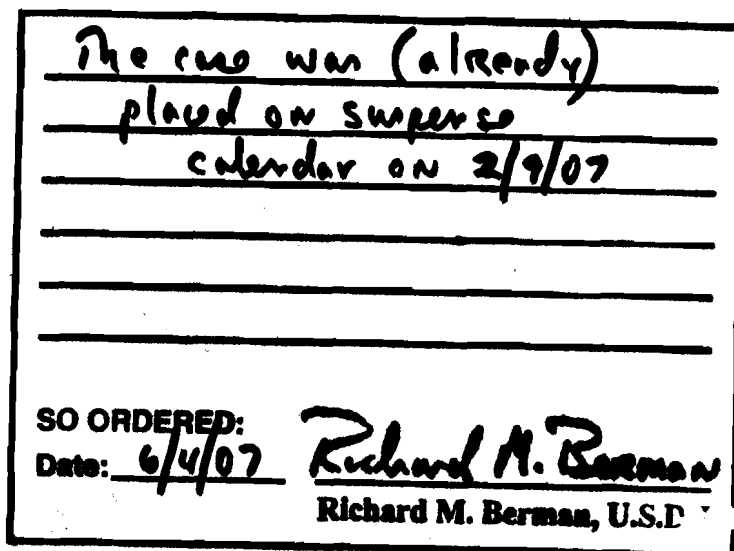 The case was (already)
placed on suspense
calendar on 2/9/07
SO ORDERED:
Date: 6/4/07 Richard M. Berman
Richard M. Berman, U.S.D